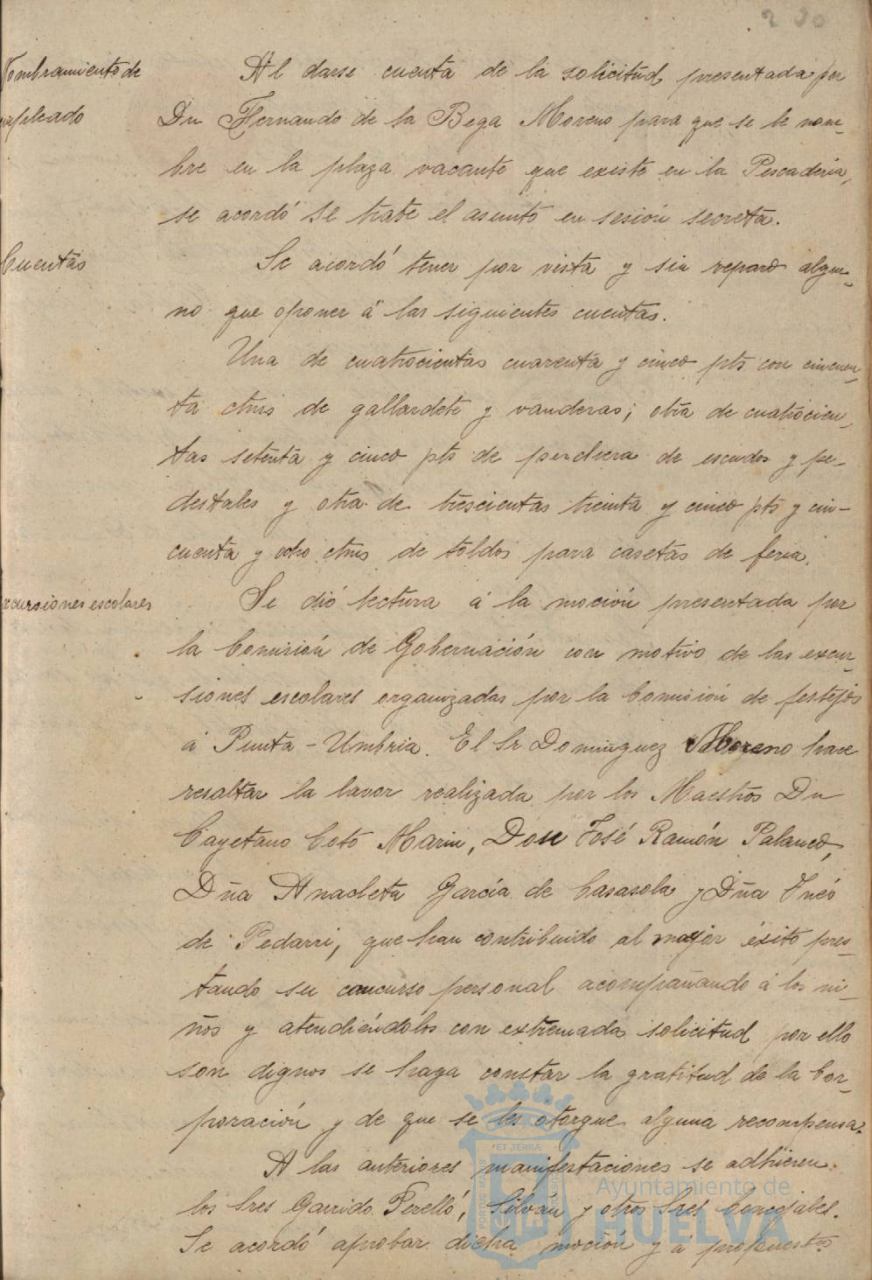 230
Nombramiento de
empleado
Al darse cuenta de la solicitud presentada por
Dn Fernando de la Bega Moreno para que se le nom-
bre en la plaza vacante que existe en la Pescadería,
se acordó se trate el asunto en sesión secreta.
Cuentas
Se acordó tener por vista y sin reparo algu-
no que oponer á las siguientes cuentas.
Una de cuatrocientas cuarenta y cinco pts con cincuen-
ta ctms de gallardete y vanderas; otra de cuatrocien-
tas setenta y cinco pts de percha de escudos y pe-
destales y otra de trescientas treinta y cinco pts y cin-
cuenta y ocho ctms de toldos para casetas de feria.
Excursiones escolares
Se dió lectura á la moción presentada por
la Comisión de Gobernación con motivo de las excur-
siones escolares organizadas por la Comisión de festejos
á Punta-Umbria. El Sr Dominguez Moreno hace
resaltar la lavor realizada por los Maestros Dn
Cayetano Coto Marin, Don José Ramón Palanco,
Dña Anacleta García de Casasola y Dña
de Pedarri, que han contribuido al mayor éxito pres-
tando su concurso personal acompañando á los ni-
ños y atendiéndolos con extremada solicitud por ello
son dignos se haga constar la gratitud de la Cor-
poración y de que se les otorgue alguna recompensa.
A las anteriores manifestaciones se adhieren
los Sres Garrido Perelló, Silván y otros Sres Concejales.
Se acordó aprobar dicha moción y á propuesta
Ayuntamiento de
HUELVA